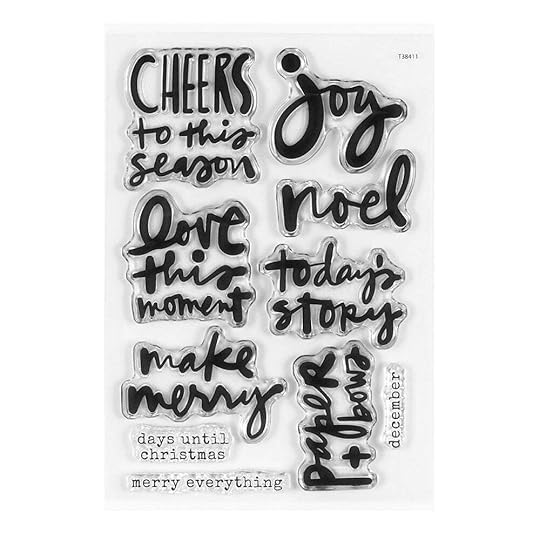 T38411
CHEERS
to this
season
joy
noel
love
this
moment
today's
story
make
merry
paper
+ bows
december
days until
christmas
merry everything